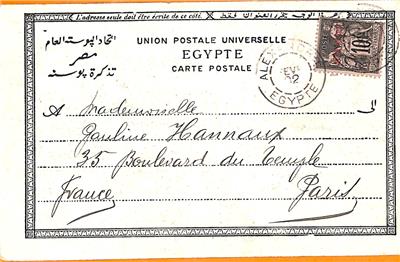 L'adresse seule doit être écrite de ce côté. فقط
اتحاد البوستة العام
مصر
تذكرة بوسته
UNION POSTALE UNIVERSELLE
EGYPTE
CARTE POSTALE
EGYPTE
10
A Mademoiselle الى
Pauline Hannaux
35 Boulevard du Temple
France Paris